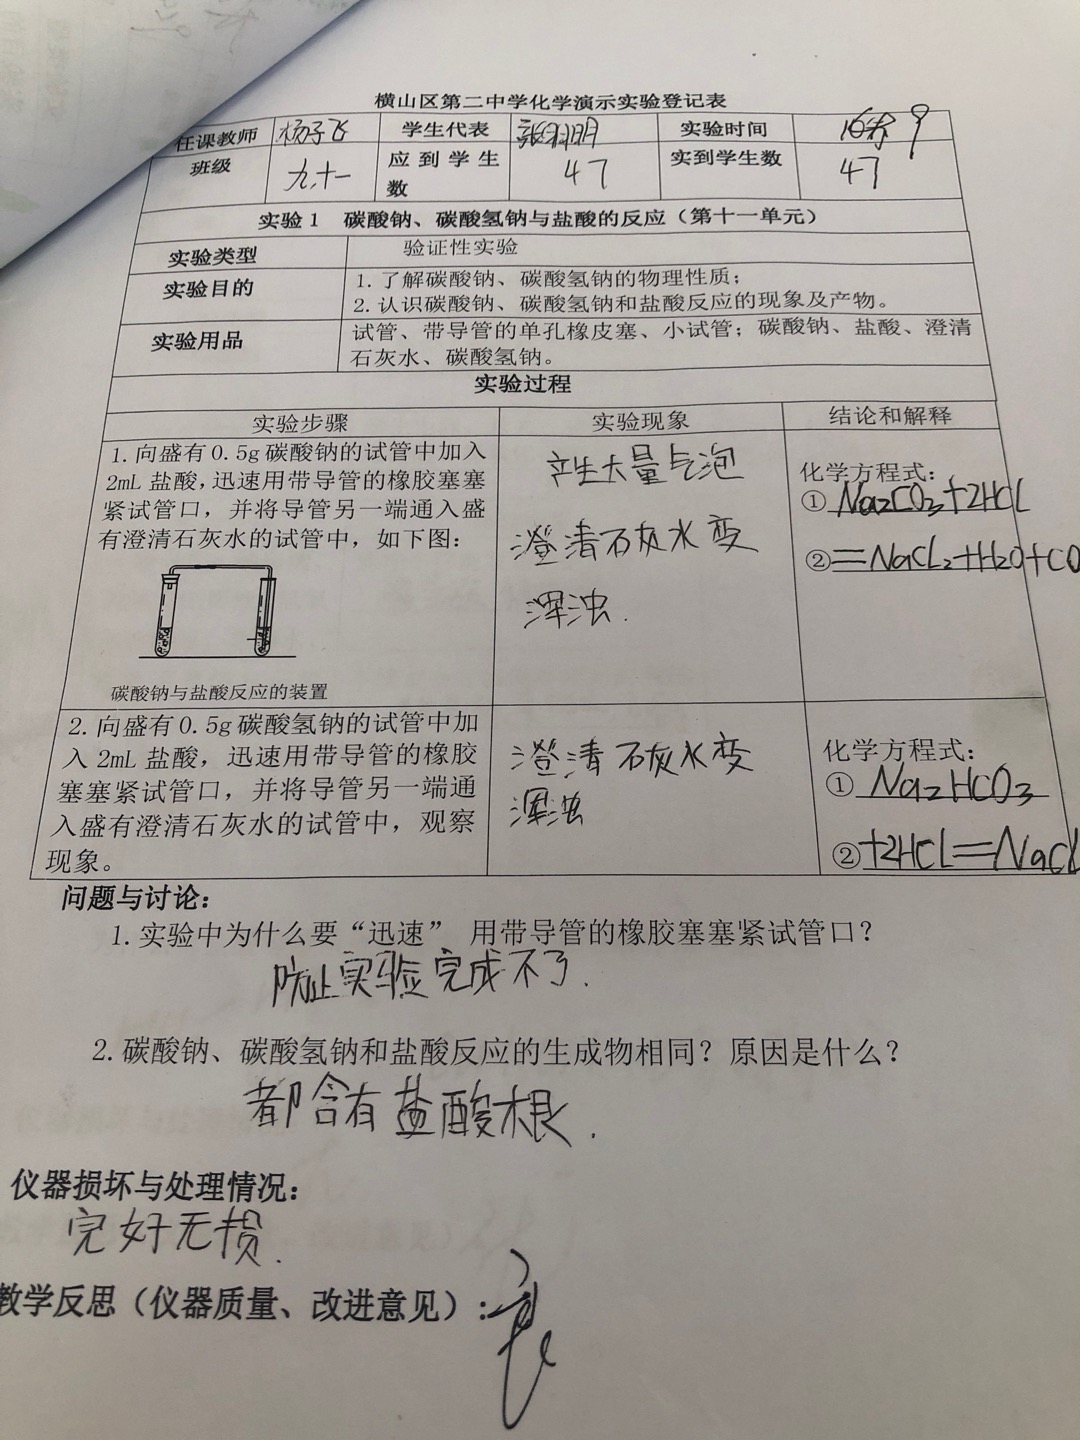 横山区第二中学化学演示实验登记表
任课教师 杨子飞 学生代表 实验时间
班级 九.十一 应到学生数 47 实到学生数 47
实验1 碳酸钠、碳酸氢钠与盐酸的反应（第十一单元）
实验类型 验证性实验
实验目的 1.了解碳酸钠、碳酸氢钠的物理性质；
2.认识碳酸钠、碳酸氢钠和盐酸反应的现象及产物。
实验用品 试管、带导管的单孔橡皮塞、小试管；碳酸钠、盐酸、澄清
石灰水、碳酸氢钠。
实验过程
实验步骤 实验现象 结论和解释
1.向盛有0.5g碳酸钠的试管中加入
2mL盐酸,迅速用带导管的橡胶塞塞
紧试管口，并将导管另一端通入盛
有澄清石灰水的试管中，如下图：
碳酸钠与盐酸反应的装置
产生大量气泡
澄清石灰水变
浑浊.
化学方程式：
①Na2CO3+2HCL
②=NaCL2+H2O+CO
2.向盛有0.5g碳酸氢钠的试管中加
入2mL盐酸，迅速用带导管的橡胶
塞塞紧试管口，并将导管另一端通
入盛有澄清石灰水的试管中，观察
现象。
澄清石灰水变
浑浊
化学方程式：
①Na2HCO3
②+2HCL=NaCL
问题与讨论：
1.实验中为什么要“迅速” 用带导管的橡胶塞塞紧试管口？
防止实验完成不了.
2.碳酸钠、碳酸氢钠和盐酸反应的生成物相同？原因是什么？
都含有盐酸根.
仪器损坏与处理情况：
完好无损.
教学反思（仪器质量、改进意见）：